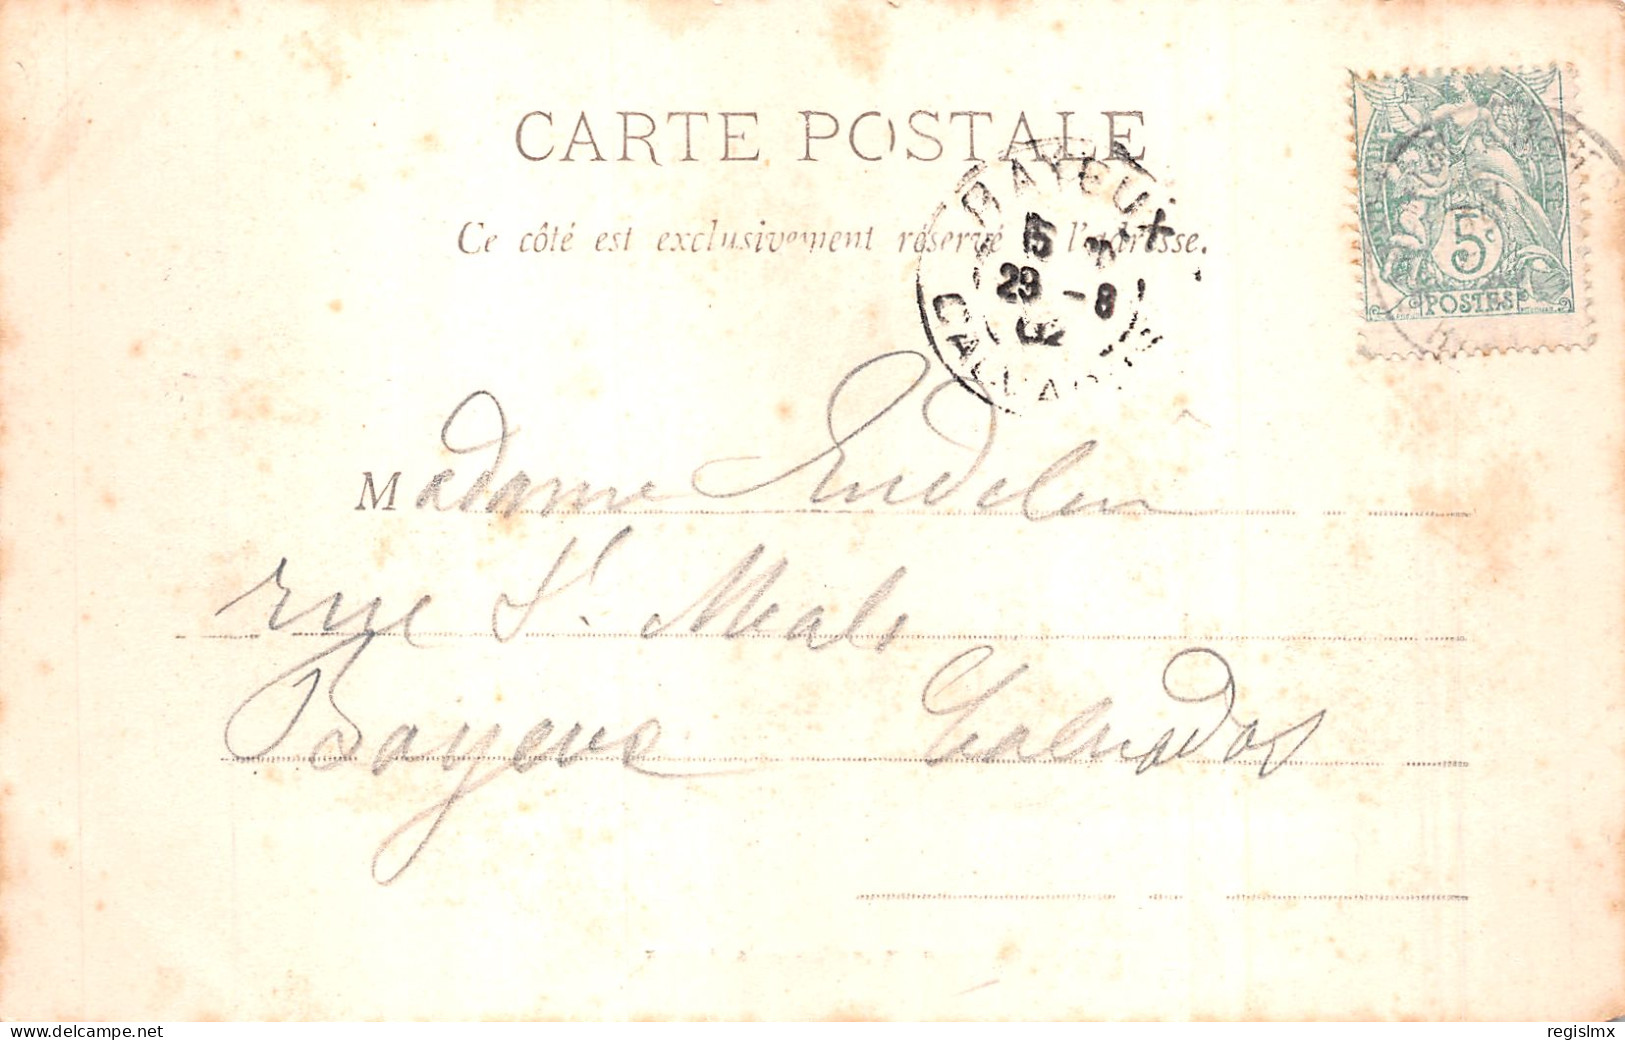 CARTE POSTALE
Ce côté est exclusivement réservé à l'adresse.
BAYEUX
29 -8
02
CALVADOS
5c
POSTES
Madame
rue St. Malo
Bayeux Calvados
website: delcampe.net
regislmx